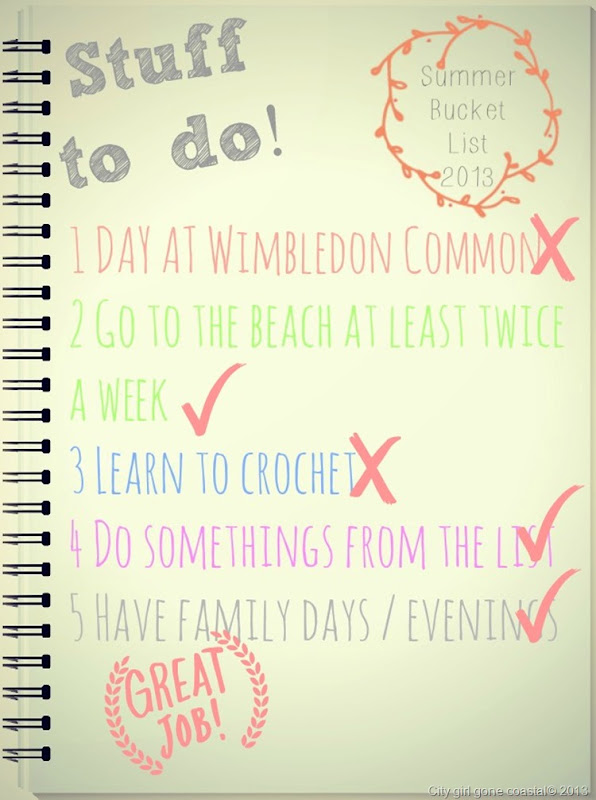 Stuff
to do!
Summer
Bucket
List
2013
1 Day at Wimbledon Common
2 Go to the beach at least twice
a week
3 Learn to crochet
4 Do somethings from the list
5 Have family days / evenings
GREAT
JOB!
City girl gone coastal© 2013